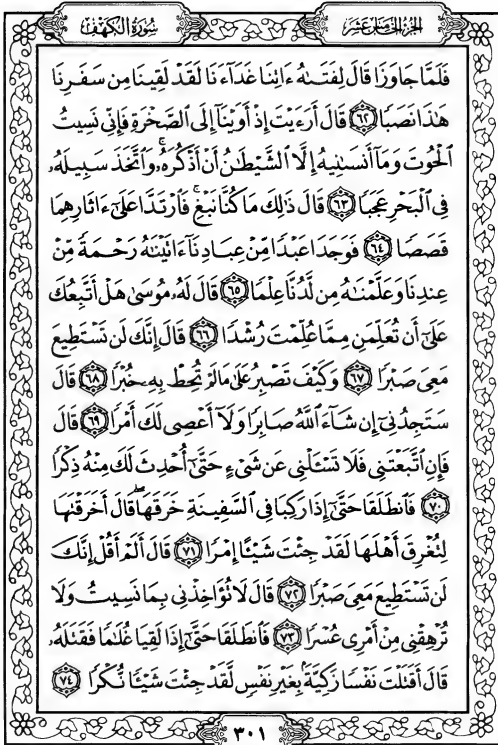 الجزء الخامس عشر
سُورَةُ الكَهْف
فَلَمَّا جَاوَزَا قَالَ لِفَتَىٰهُ ءَاتِنَا غَدَآءَنَا لَقَدْ لَقِينَا مِن سَفَرِنَا
هَٰذَا نَصَبًا ٦٢ قَالَ أَرَءَيْتَ إِذْ أَوَيْنَآ إِلَى ٱلصَّخْرَةِ فَإِنِّي نَسِيتُ
ٱلْحُوتَ وَمَآ أَنسَىٰنِيهُ إِلَّا ٱلشَّيْطَٰنُ أَنْ أَذْكُرَهُۥۚ وَٱتَّخَذَ سَبِيلَهُۥ
فِي ٱلْبَحْرِ عَجَبًا ٦٣ قَالَ ذَٰلِكَ مَا كُنَّا نَبْغِۚ فَٱرْتَدَّا عَلَىٰٓ ءَاثَارِهِمَا
قَصَصًا ٦٤ فَوَجَدَا عَبْدًا مِّنْ عِبَادِنَآ ءَاتَيْنَٰهُ رَحْمَةً مِّنْ
عِندِنَا وَعَلَّمْنَٰهُ مِن لَّدُنَّا عِلْمًا ٦٥ قَالَ لَهُۥ مُوسَىٰ هَلْ أَتَّبِعُكَ
عَلَىٰٓ أَن تُعَلِّمَنِ مِمَّا عُلِّمْتَ رُشْدًا ٦٦ قَالَ إِنَّكَ لَن تَسْتَطِيعَ
مَعِيَ صَبْرًا ٦٧ وَكَيْفَ تَصْبِرُ عَلَىٰ مَا لَمْ تُحِطْ بِهِۦ خُبْرًا ٦٨ قَالَ
سَتَجِدُنِيٓ إِن شَآءَ ٱللَّهُ صَابِرًا وَلَآ أَعْصِي لَكَ أَمْرًا ٦٩ قَالَ
فَإِنِ ٱتَّبَعْتَنِي فَلَا تَسْـَٔلْنِي عَن شَيْءٍ حَتَّىٰٓ أُحْدِثَ لَكَ مِنْهُ ذِكْرًا
٧٠ فَٱنطَلَقَا حَتَّىٰٓ إِذَا رَكِبَا فِي ٱلسَّفِينَةِ خَرَقَهَاۖ قَالَ أَخَرَقْتَهَا
لِتُغْرِقَ أَهْلَهَا لَقَدْ جِئْتَ شَيْـًٔا إِمْرًا ٧١ قَالَ أَلَمْ أَقُلْ إِنَّكَ
لَن تَسْتَطِيعَ مَعِيَ صَبْرًا ٧٢ قَالَ لَا تُؤَاخِذْنِي بِمَا نَسِيتُ وَلَا
تُرْهِقْنِي مِنْ أَمْرِي عُسْرًا ٧٣ فَٱنطَلَقَا حَتَّىٰٓ إِذَا لَقِيَا غُلَٰمًا فَقَتَلَهُۥ
قَالَ أَقَتَلْتَ نَفْسًا زَكِيَّةًۢ بِغَيْرِ نَفْسٍ لَّقَدْ جِئْتَ شَيْـًٔا نُّكْرًا ٧٤
٣٠١